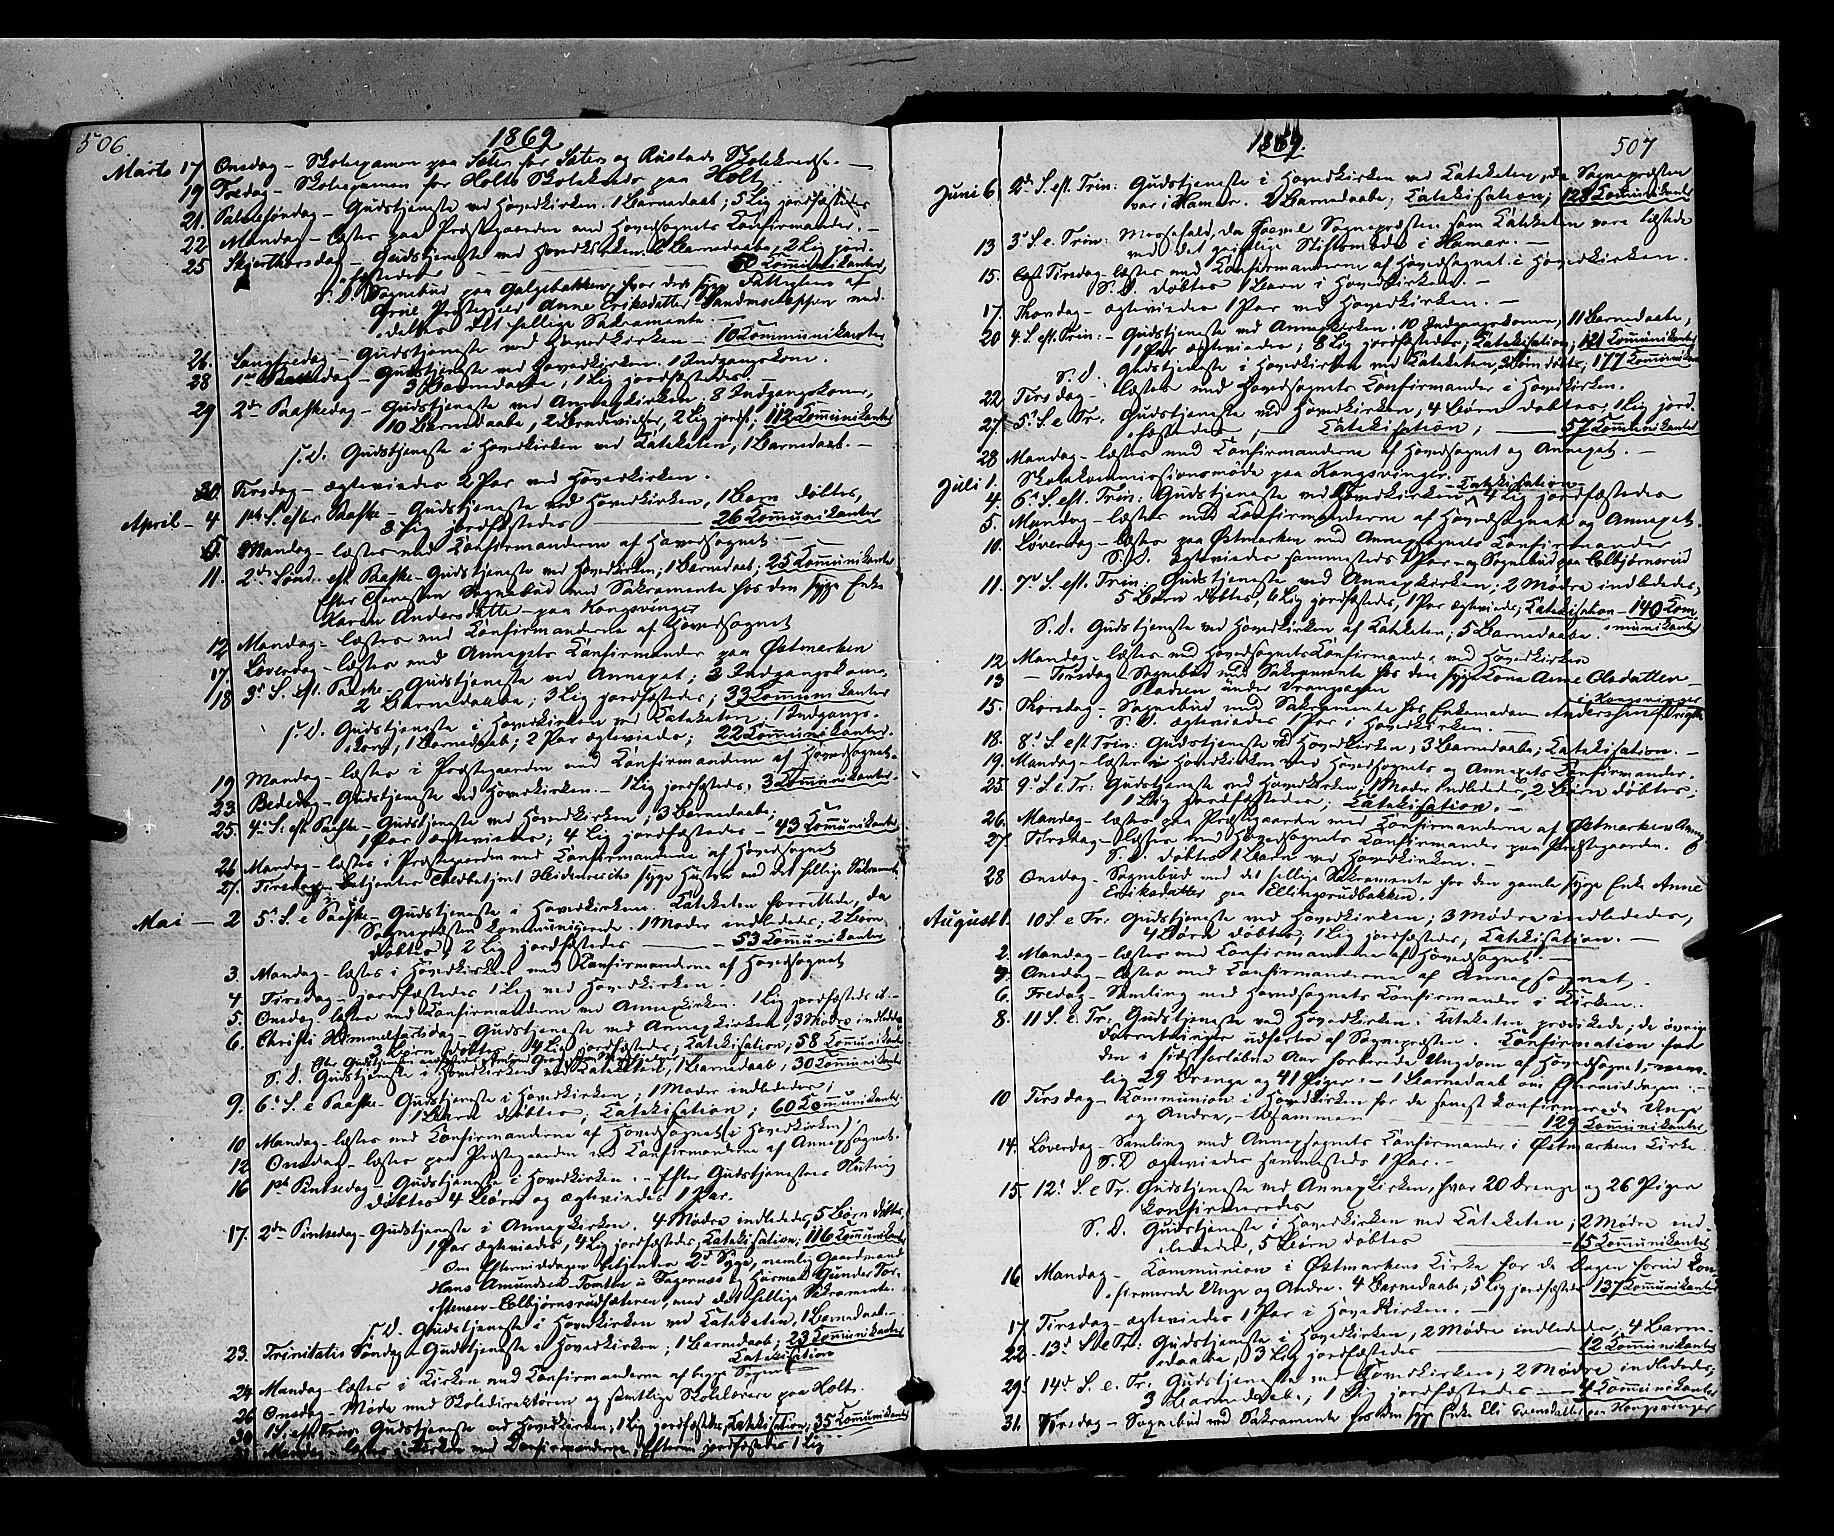 506
1869
Marts 17 Onsdag – Skoleexamen paa Sæter for Sæters og Rustads Skolekreds. –
19 Fredag – Skoleexamen for Holts Skolekreds paa Holt.
21. Palmesøndag – Gudstjeneste ved Hovedkirken. 1 Barnedaab; 5 Lig jordfæstedes
22 Mandag – læstes paa Præstegaarden med Hovedsognets Confirmander. –
25 Skjærthorsdag – Gudstjeneste ved Hovedkirken. 2 Barnedaabe, 2 Lig jord-
fæstedes – 50 Kommunikanter
S. D. Sognebud paa Galgebakken, hvor den syge Fattiglem af
Præstegjeld Anne Eriksdatter med-
deltes det hellige Sakramente.
26. Langfredag – Gudstjeneste ved Hovedkirken – 10 Kommunikanter
28 1ste Paaskedag – Gudstjeneste ved Hovedkirken. 1 Indgangskone.
3 Barnedaabe, 1 Lig jordfæstedes. –
29 2den Paaskedag – Gudstjeneste ved Annexkirken; 8 Indgangskoner,
10 Barnedaabe, 2 Brudevielser, 2 Lig jordf.; 112 Kommunikanter
S. D. Gudstjeneste i Hovedkirken ved Kateketen, 1 Barnedaab. –
30. Tirsdag – ægteviedes 2 Par ved Hovedkirken.
April – 4 1ste S. efter Paaske – Gudstjeneste ved Hovedkirken, 1 Barn døbtes,
3 Lig jordfæstedes – 26 Kommunikanter
5. Mandag – læstes med Confirmanderne af Hovedsognet –
11. 2den Sønd. eft. Paaske – Gudstjeneste ved Hovedkirken; 1 Barnedaab; 25 Kommunikanter
Efter Tjenesten Sognebud med Sakramente hos den syge Enke
Karen Andersdatter – paa Kongsvinger
12 Mandag – læstes med Confirmanderne af Hovedsognet
17. Løverdag – læstes med Annexets Confirmander paa Østmarken
18 3die S. eft. Paaske – Gudstjeneste ved Annexet; 3 Indgangskoner,
2 Barnedaabe; 3 Lig jordfæstedes; 33 Kommunikanter
S. D. Gudstjeneste i Hovedkirken ved Kateketen. 1 Indgangs-
kone, 1 Barnedaab; 2 Par ægteviedes; 22 Kommunikanter.
19 Mandag – læstes i Præstegaarden med Confirmanderne af Hovedsognet.
23. Bededag – Gudstjeneste ved Hovedkirken. – 1 Lig jordfæstedes; 3 Kommunikanter.
25. 4de S. eft. Paaske – Gudstjeneste ved Hovedkirken; 3 Barnedaabe;
1 Par ægteviedes; 4 Lig jordfæstedes – 43 Kommunikanter
26 Mandag – læstes i Præstegaarden med Confirmanderne af Hovedsognet
27. Tirsdag – betjentes Heidenreichs syge Hustru med det hellige Sakramente
Mai – 2 5te S. e Paaske – Gudstjeneste i Hovedkirken. Kateketen forrettede, da
Sognepræsten kommunicerede. 1 Moder indlededes; 2 Børn
døbtes, 2 Lig jordfæstedes – 53 Kommunikanter
3. Mandag – læstes i Hovedkirken med Konfirmanderne af Hovedsognet
4. Tirsdag – jordfæstedes 1 Lig ved Hovedkirken.
5. Onsdag – læstes med Confirmanderne ved Annexkirken. 1 Lig jordfæstedes
6. Christi Himmelfartsdag. Gudstjeneste ved Annexkirken, 3 Mødre indlededes,
3 Børn døbtes, 4 Lig jordfæstedes; Catekisation; 58 Kommunikanter
S. D. Gudstjeneste i Hovedkirken ved Kateketen, 1 Barnedaab, 30 Kommunikanter
9. 6te S. e Paaske – Gudstjeneste i Hovedkirken; 1 Moder indlededes;
1 Barn døbtes, Catekisation; 60 Kommunikanter
10 Mandag – læstes med Confirmanderne af Hovedsognet (i Hovedkirken)
12 Onsdag – læstes paa Præstegaarden med Confirmanderne af Annexsognet.
16 1ste Pintsedag – Gudstjeneste i Hovedkirken. – Efter Gudstjenestens Slutning
døbtes 4 Børn og ægteviedes 1 Par.
17. 2den Pintsedag – Gudstjeneste i Annexkirken. 4 Mødre indlededes, 5 Børn døbtes
1 Par ægteviedes, 4 Lig jordfæstedes; Catekisation; 116 Kommunikanter
Om Eftermiddagen betjentes 2de Syge, nemlig Gaardmand
Hans Amundsen og Husmand Gunder Tor-
stensen – Colbjørnsrudsæteren, med det hellige Sakramente.
S. D. Gudstjeneste i Hovedkirken ved Kateketen, 1 Barnedaab. –
23. Trinitatis Søndag – Gudstjeneste i Hovedkirken; 1 Barnedaab; 23 Kommunikanter
Catekisation
24 Mandag – læstes i Kirken med Confirmanderne af begge Sogne
26 Onsdag – Møde med Skoledirektøren og samtlige Skolelærere paa Holt.
30 1 S. eft Trin: Gudstjeneste ved Hovedkirken; 1 Lig jordfæstedes, Catekisation; 35 Kommunikanter
31 Mandag – læstes i Kirken med Confirmanderne, jordfæstedes 1 Lig
1869.
507
Juni 6 2den S. eft. Trin: Gudstjeneste i Hovedkirken ved Kateketen, da Sognepræsten
var i Hamar. 2 Barnedaabe; Catekisation; 128 Kommunikanter
13 3die S. e. Trin: Messefald, da saavel Sognepræsten som Kateketen vare tilstede
ved det gejstlige Stiftsmøde i Hamar. –
15. Tirsdag – læstes med Confirmanderne af Hovedsognet i Hovedkirken.
S. D. døbtes 1 Barn i Hovedkirken. –
17. Thorsdag – ægteviedes 1 Par ved Hovedkirken. –
20 4. S. eft. Trin: – Gudstjeneste ved Annexkirken. 10 Indgangskoner, 11 Barnedaabe,
1 Par ægteviedes; 8 Lig jordfæstedes; Catekisation; 121 Kommunikanter
S. D. Gudstjeneste i Hovedkirken ved Kateketen, døbtes; 177 Kommunikanter
22 Tirsdag – læstes med Hovedsognets Confirmander i Hovedkirken.
27. 5te S. e Tr. Gudstjeneste ved Hovedkirken, 4 Børn døbtes, 1 Lig jord-
fæstedes, – Catekisation; – 57 Kommunikanter
28 Mandag – læstes med Confirmanderne af Hovedsognet og Annexet. –
Juli 1. Skolekommissionsmøde paa Kongsvinger.
4 6te S. eft. Trin: Gudstjeneste ved Hovedkirken, Catekisation – 4 Lig jordfæstedes
5. Mandag – læstes med Confirmanderne af Hovedsognet og Annexet.
10. Løverdag – læstes paa Østmarken med Annexsognets Confirmander
S. D. ægteviedes sammesteds 1 Par – og Sognebud paa Colbjørnsrud
11. 7de S. eft. Trin: Gudstjeneste ved Annexkirken; 2 Mødre indlededes,
5 Børn døbtes, 6 Lig jordfæstedes, 1 Par ægteviedes; Catekisation – 140 Kom-
munikanter
S. D. Gudstjeneste ved Hovedkirken af Kateketen; 5 Barnedaabe.
12 Mandag – læstes med Hovedsognets Confirmander ved Hovedkirken
13 – Tirsdag – Sognebud med Sakramente hos den syge Kone Anne Olsdatter –
under Vrangaasen
15. Thorsdag. Sognebud med Sakramente hos Enkemadam i Kongsvinger
S. D. ægteviedes 1 Par i Hovedkirken. –
18. 8de S. eft Trin: Gudstjeneste ved Hovedkirken, 3 Barnedaabe; Catekisation. –
19. Mandag – læstes i Hovedkirken med Hovedsognets og Annexets Confirmander.
25. 9de S. e Tr: Gudstjeneste ved Hovedkirken, 1 Moder indlededes, 2 Børn døbtes;
1 Lig jordfæstedes; Catekisation. –
26. Mandag – læstes paa Præstegaarden med Confirmanderne af Østmarkens Annex
27. Tirsdag – læstes med Hovedsognets Confirmander paa Præstegaarden.
S. D. døbtes 1 Barn ved Hovedkirken. –
28 Onsdag – Sognebud med det hellige Sakramente hos den gamle syge Enke Anne
Eriksdatter paa Ellingsrudbakken.
August 1. 10 S. e Tr: Gudstjeneste ved Hovedkirken; 3 Mødre indlededes,
4 Børn døbtes; 1 Lig jordfæstedes; Catekisation. –
2. Mandag – læstes med Confirmanderne af Hovedsognet. –
4. Onsdag – læstes med Confirmanderne af Annexsognet. –
6. Fredag – Samling med Hovedsognets Confirmander i Kirken.
8. 11 S. e. Tr: Gudstjeneste ved Hovedkirken. Kateketen prædikede; de øvrige
Forretninger udførtes af Sognepræsten. Confirmation for
den i sidst forløbne Aar forberedte Ungdom af Hovedsognet, nem-
lig 29 Drenge og 41 Piger. – 1 Barnedaab om Eftermiddagen. –
10 Tirsdag – Kommunion i Hovedkirken for de senest konfirmerede Unge
og Andre, – tilsammen – 129 Kommunikanter
14. Løverdag – Samling med Annexsognets Confirmander i Østmarkens Kirke
S. D ægteviedes sammesteds 1 Par. –
15. 12te S. e Tr. Gudstjeneste ved Annexkirken, hvor 20 Drenge og 26 Piger
konfirmeredes
S. D. Gudstjeneste i Hovedkirken ved Kateketen, 2 Mødre ind-
lededes, 5 Børn døbtes – 15 Kommunikanter
16 Mandag – Kommunion i Østmarkens Kirke for de Dagen forud kon-
firmerede Unge og Andre. 4 Barnedaabe, 5 Lig jordfæstedes 137 Kommunikanter
17. Tirsdag – ægteviedes 1 Par i Hovedkirken. –
22 13de S. e Tr: Gudstjeneste i Hovedkirken, 2 Mødre indlededes, 4 Barne-
daabe, 3 Lig jordfæstedes – 12 Kommunikanter
29. 14de S. e. Tr. Gudstjeneste ved Hovedkirken; 2 Mødre indlededes,
3 Barnedaab; 1 Lig jordfæstedes – 4 Kommunikanter
31. Tirsdag – Sognebud med Sakramente hos den syge Enke Eli Svensdatter paa Kongsvinger